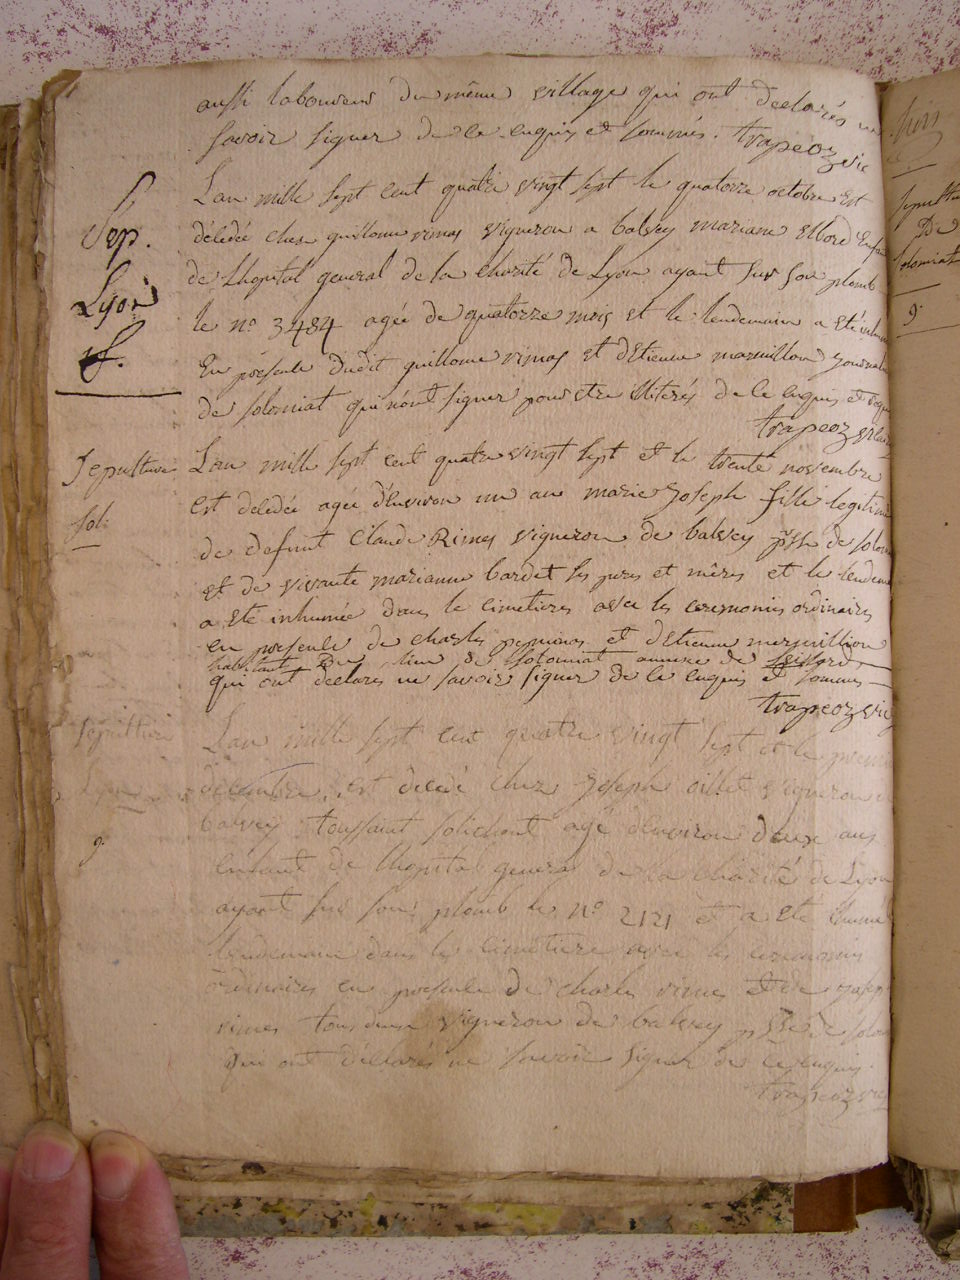 aussi laboureur du même village qui ont declarés ne
savoir signer de ce enquis et sommés. trapeoz vic
Sép.
Lyon
Lan mille sept cent quatre vingt sept le quatorze octobre est
décédée ches guillaume rimas vigneron a balvey mariane enfan
de Lhopital general de la charité de Lyon ayant sur son plomb
le no 3484 agée de quatorze mois et le lendemain a eté
En présence dudit guillaume rimas et dEtienne marmillon journal
de soloniat qui nont signer pour etre illiterés de ce enquis et
trapeoz
Sepulture
Sol:
Lan mille sept cent quatre vingt sept et le trente novembre
est décédée agée d'environ un an marie Joseph fille legitime
de defunt Claude Rimes vigneron de balvey psse de solon
et de vivante marianne bardet ses peres et mères et le lendem
a eté inhumée dans le cimetieres avec les ceremonies ordinaires
en presence de charles et dEtienne mermillion
habitant du lieu de soloniat annexe de
qui ont declares ne savoir signer de ce enquis et sommes
trapeoz vic
Sepulture
Lyon
g
Lan mille sept cent quatre vingt sept et le premie
décembre, est décédé chez Joseph oillet vigneron a
balvey toussaint agé denviron deux ans
enfant de lhopital general de la charité de Lyon
ayant sur son plomb le No 2121 et a eté
lendemain dans le cimetiere avec les ceremonies
ordinaires en presence de charles rimes et de Joseph
rimes tous deux vigneron de balvey psse de solon
qui ont déclarés ne savoir signer de ce enquis
trapeoz vic
Sepultu
De
soloniat
g.